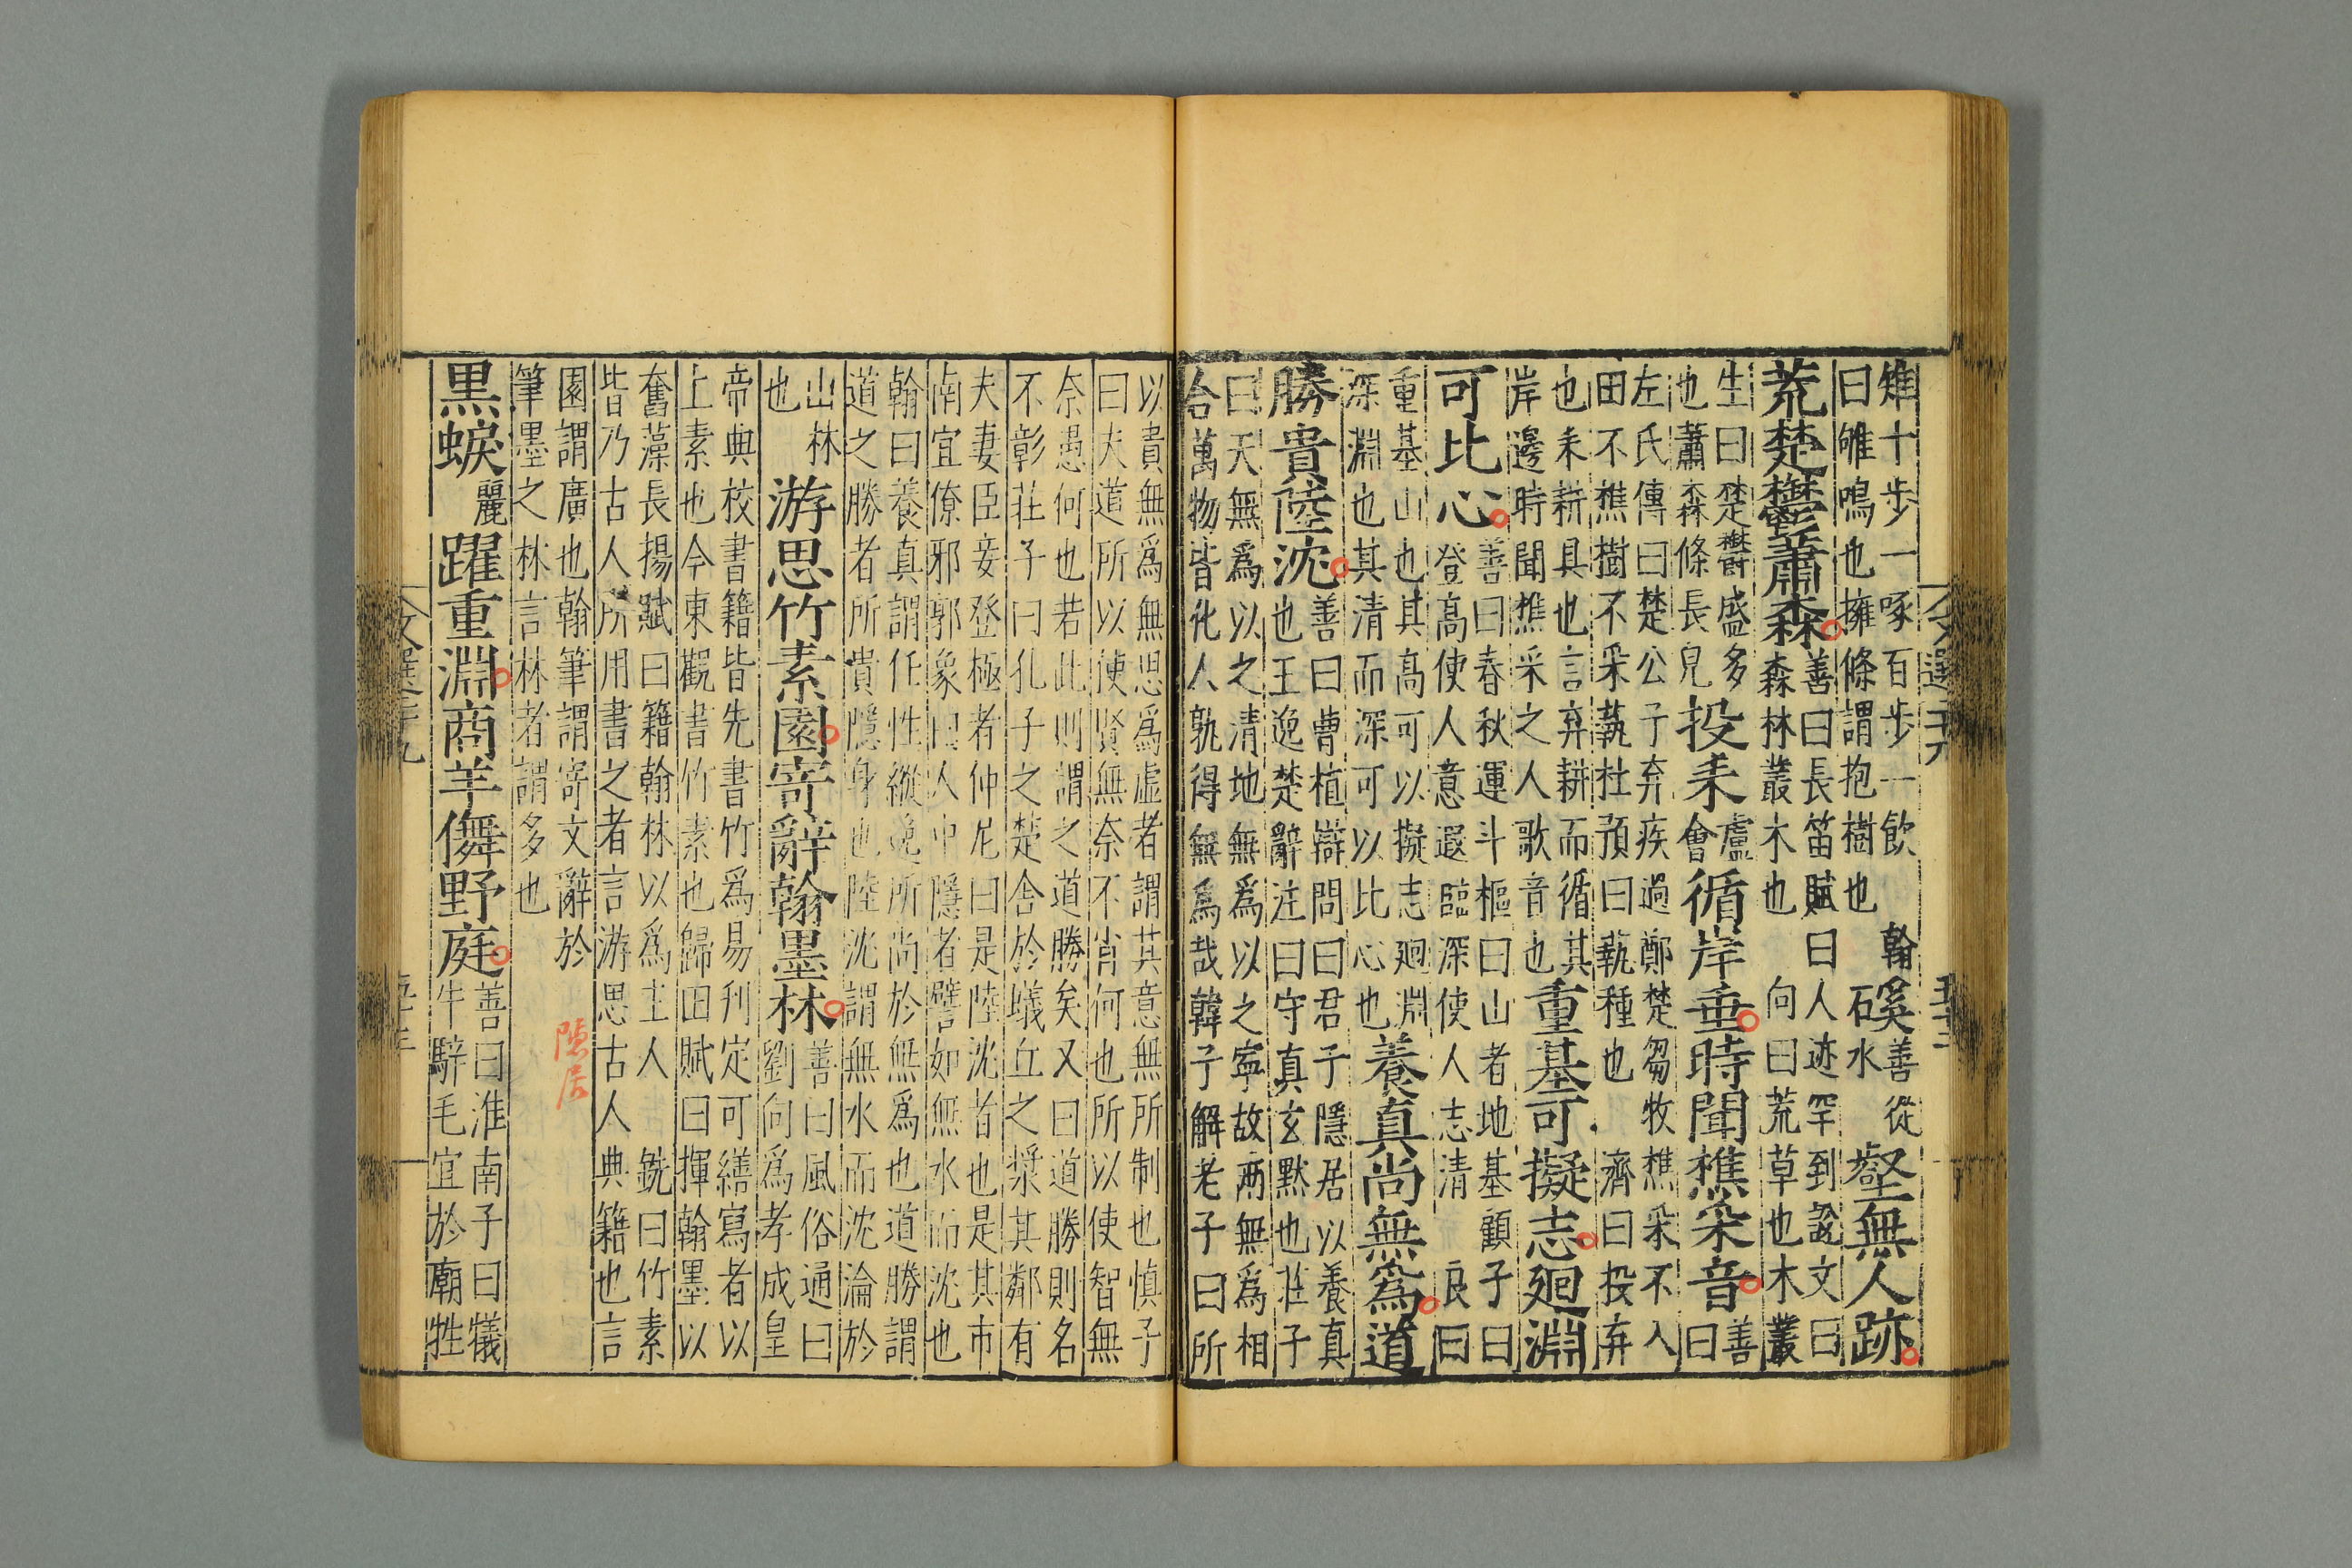 雉十步一啄百步一飲翰曰雊鳴也擁條謂抱樹也磎善從石水壑無人跡
荒楚鬱蕭森善曰長笛賦曰人迹罕到說文曰森林叢木也向曰荒草也木叢
生曰楚鬱盛多也蕭森條長皃投耒盧會循岸垂時聞樵采音善曰
左氏傳曰楚公子弃疾過鄭楚芻牧樵采不入田不樵樹不采蓺杜預曰蓺種也濟曰投弃
也耒耕具也言弃耕而循其岸邊時聞樵采之人歌音也重基可擬志廻淵
可比心善曰春秋運斗樞曰山者地基顧子曰登高使人意遐臨深使人志清良曰
重基山也其高可以擬志廻淵深淵也其清而深可以比心也養真尚無爲道
勝貴陸沈善曰曹植辯問曰君子隱居以養真也王逸楚辭注曰守真玄默也莊子
曰天無爲以之清地無爲以之寧故兩無爲相合萬物皆化人孰得無爲哉韓子解老子曰所
以貴無爲無思爲虛者謂其意無所制也慎子曰夫道所以使賢無奈不肖何也所以使智無
奈愚何也若此則謂之道勝矣又曰道勝則名不彰莊子曰孔子之楚舍於蟻丘之漿其鄰有
夫妻臣妾登極者仲尼曰是陸沈者也是其市南宜僚邪郭象曰人中隱者譬如無水而沈也
翰曰養真謂任性縱逸所尚於無爲也道勝謂道之勝者所貴隱身也陸沈謂無水而沈淪於
山林也游思竹素園寄辭翰墨林善曰風俗通曰劉向爲孝成皇
帝典校書籍皆先書竹爲易刊定可繕寫者以上素也今東觀書竹素也歸田賦曰揮翰墨以
奮藻長揚賦曰籍翰林以爲主人銑曰竹素皆乃古人所用書之者言游思古人典籍也言
園謂廣也翰筆謂寄文辭於筆墨之林言林者謂多也
隱居
黒蜧麗躍重淵商羊儛野庭善曰淮南子曰犧牛騂毛宜於廟牲